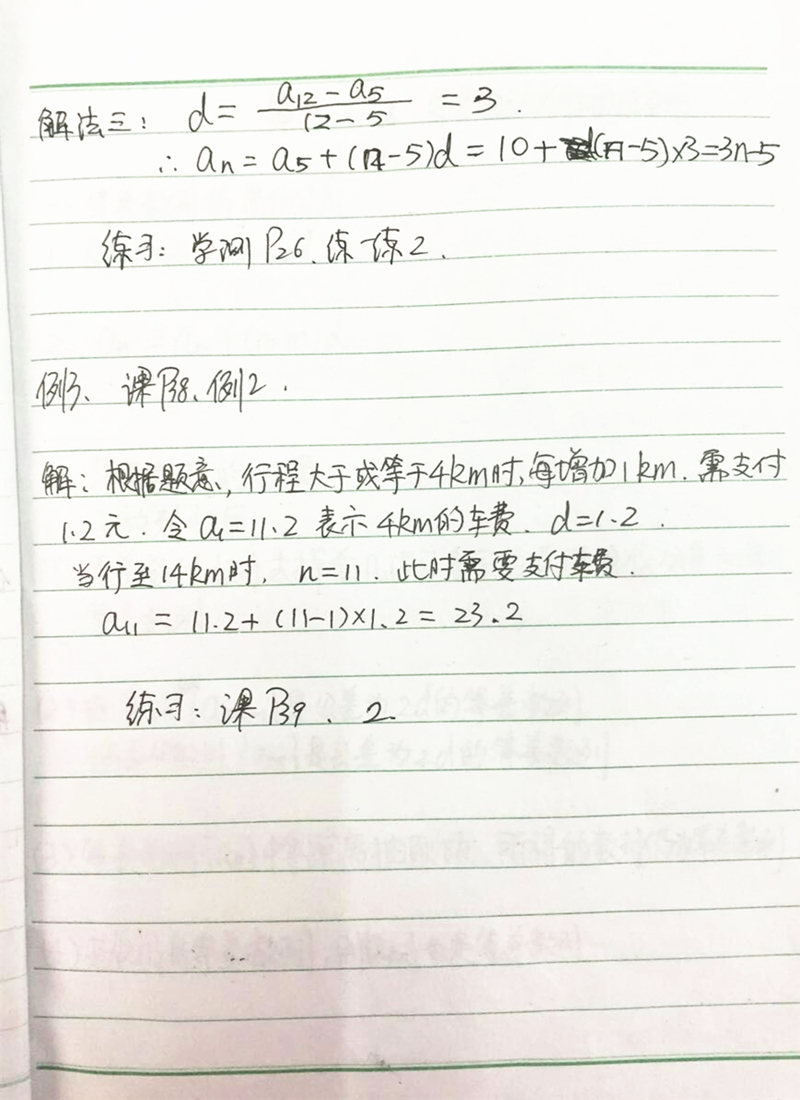 解法三： d = (a12 - a5)/(12 - 5) = 3.
∴ an = a5 + (n-5)d = 10 + (n-5)×3 = 3n-5
练习：学测 P26. 练一练2.
例3、课P38、例2.
解：根据题意，行程大于或等于4km时，每增加1km. 需支付
1.2元. 令 a1=11.2 表示 4km的车费. d=1.2.
当行至14km时, n=11. 此时需要支付车费.
a11 = 11.2 + (11-1)×1.2 = 23.2
练习：课P39、2.